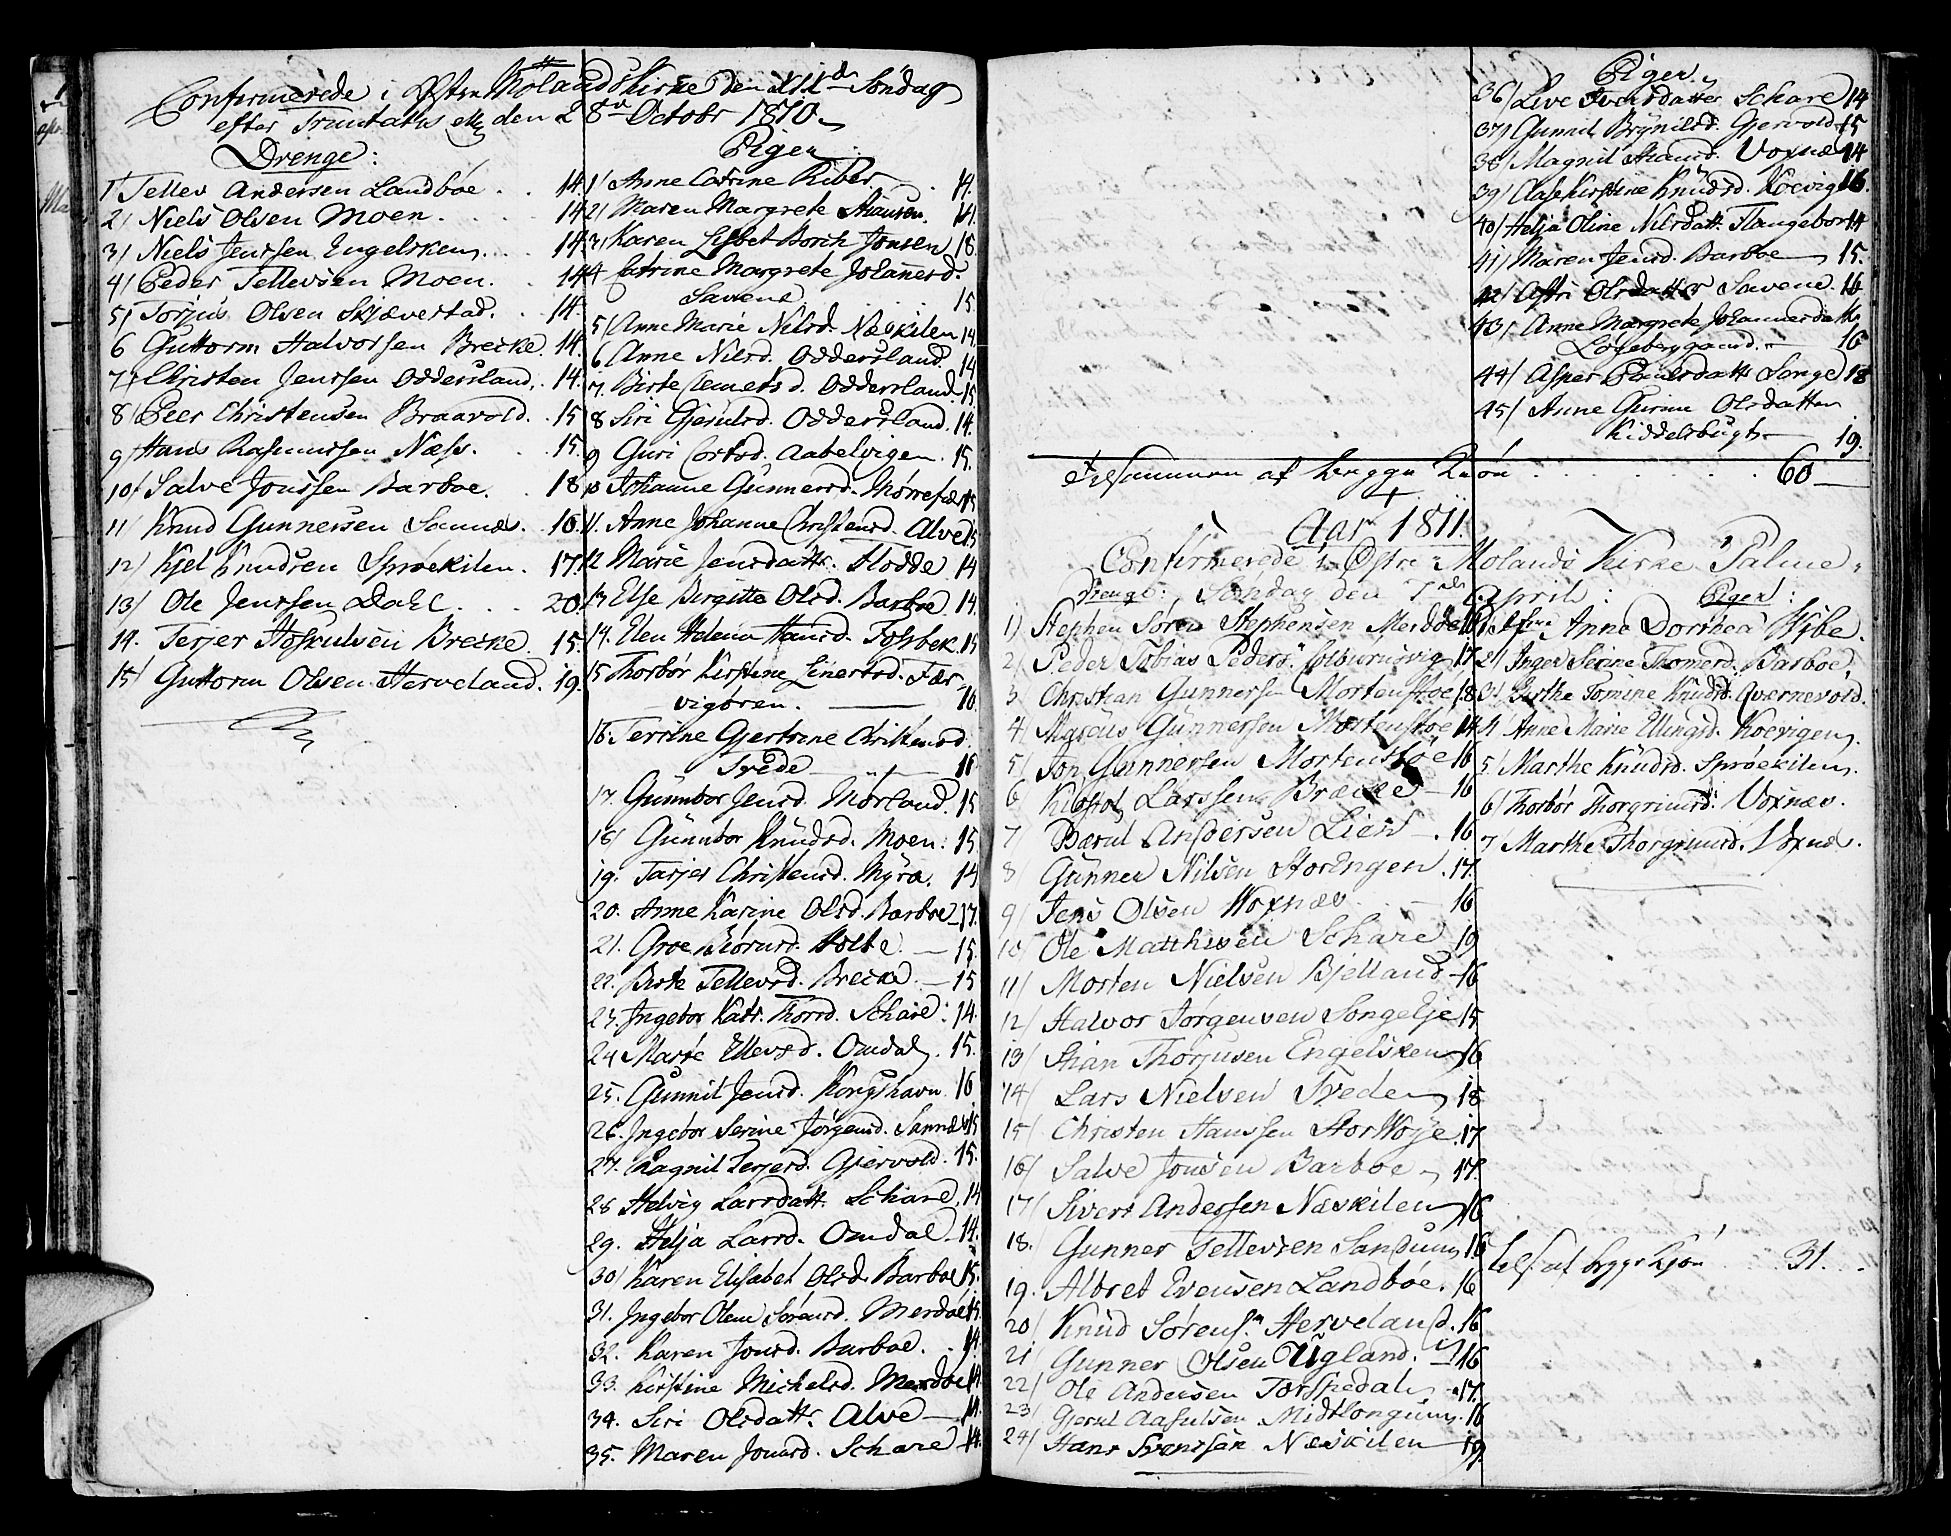 Confirmerede i Østre Molands Kirke den XIXde Søndag
efter Trinitatis eller den 28de Octobr 1810.
Drenge:
1/ Tellev Andersen Landbøe . . 14.
2/ Niels Olsen Moen . . . 14
3/ Niels Jenssen Engelsken . . . 14
4/ Peder Tellevsen Moen. . 14
5/ Torjus Olsen Skjævestad. . 14.
6 Guttorm Halvorssen Breike. 14.
7/ Christen Jenssen Oddersland. . 14.
8/ Peer Christensen Braavold. . 15
9/ Hans Rasmussen Næss. . . 15.
10/ Salve Jonssen Barboe. . 18
11/ Knud Gunnersen Sannæs. . 16.
12/ Kjel Knudsen Sprøekilen. 17.
13/ Ole Jenssen Dahl. . . 20.
14. Terjer Hoskulsen Breike. 15.
15/ Guttorm Olsen Herveland. 19.
Piger:
1/ Anne Catrine Riber . 14.
2/ Maren Margrete Hansen. 14.
3/ Karen Lisbet Borch Jonsen 18
4 Catrine Margrete Johannesd.
Savene 15.
5/ Anne Marie Nilsd. Næskilen 14
6/ Anne Nilsd. Oddersland. 14
7. Birte Clemetsd. Oddersland. 15
8 Siri Gjerulsd. Oddersland. 14.
9 Guri Cortsd. Aabelvigen. 15.
10 Johanne Gunnersd. Mørrefiær 15
11. Anne Johanne Christensd. Alve 15
12 Marie Jensdattr. Hodde 14
13 Else Birgitte Olsd. Barboe 14.
14. Elen Helena Hansd. Fossbek. 15
15 Thorbør Kirstine Einertsd. Fær-
vigøren. 16.
16. Terrine Gjertrine Christensd.
Tvede 16
17. Gunnbor Jensd. Mørland. 15
18/ Gunnbor Knudsd. Moen: 15.
19. Tarjer Christensd. Myra. 14
20. Anne Karine Olsd. Barboe 17.
21. Groe Biørnsd. Holte 15.
22. Birte Tellevsd. Breike. 15
23. Ingebor Katr. Thorsd. Schare: 14.
24 Marie Ellevsd. Omdal. 15.
25. Gunnil Jensd. Kongshavn 16
26. Ingebor Serine Jørgensd. Sannæs 15
27. Ragnil Terjersd. Gjervold. 15.
28 Helvig Larsdatt. Schare. 14
29. Helja Larsd. Omdal 14.
30/ Karen Elisabet Olsd. Barboe 15.
31. Ingebor Olene Sørensd. Merdøe 15.
32. Karen Jonsd. Barboe. . 14.
33. Kirstine Michelsd. Merdøe 14.
34. Siri Olsdattr. Alve 14.
35. Maren Jonsd. Schare 14.
Piger
36/ Live Iversdatter Schare 14
37/ Gunnil Brynilsd. Gjervold 15
38/ Magnil Hansd. Voxnæs 14
39/ Aase Kirstine Knudsd. Koevig 16.
40/ Helja Oline Nilsdatt. Flangebor 14
41/ Maren Jensd. Barboe 15.
42/ Astri Olsdatter Savene. 16
43/ Anne Margrete Johannesdatter
16
44/ Asper Poulsdatt Songe 18
45/ Anne Gurine Olsdatter
Kiddelsbugt 19.
Tilsammen af begge Kiøn . . . . . . 60
Aar 1811.
Confirmerede i Østre Molands Kirke Palme-
Drenge: Søndag den 7de April: Piger:
1/ Stephen Søren Stephensen Merdøe 16
2/ Peder Tobias Peders. Colbiørnsvig 17.
3 Christian Gunnersen Mortenstøe 18
4/ Marcus Gunnersen Mortenstøe 14
5/ Jon Gunnersen Mortenstøe 16
6/ Kistol Larssen Bræcke 16
7/ Bærul Andersen Lien . 16
8 Gunner Nilsen Storengen . 17.
9/ Jens Olsen Woxnæs 16
10/ Ole Matthisen Schare 19
11/ Morten Nielsen Bjelland 16
12/ Halvor Jørgensen Songelje 15
13/ Stian Thorjusen Engelsken 16
14/ Lars Nielsen Tveden 18
15/ Christen Hanssen Storwoje. 17
16/ Salve Jonsen Barboe 17.
17/ Sivert Andersen Næskilen 16
18. Gunner Tellevsen Sandum 16
19. Albret Evensen Landbøe. 16
20/ Knud Sørens. Herveland. 16
21 Gunner Olsen Ugland. 16
22/ Ole Andersen Torsvedal 17.
23/ Gjerul Aasulsen Midtlongum. 16
24/ Hans Svenssen Næskilen 19.
1. Jfru Anne Dorthea Wibe.
2/ Inger Serine Thomesd. Barboe
3/ Birthe Tomine Knudsd. Qvernevold.
4/ Anne Marie Ellingsd. Koevigen.
5/ Marthe Knudsd. Sprøekilen.
6/ Thorbør Thorgrimsd. Voxnæs.
7 Marthe Thorgrimsd. Voxnæs.
tils. af begge Kjøn . . . 31. .